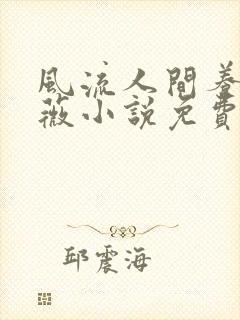 風流人間養
薇小說免費
邱震海